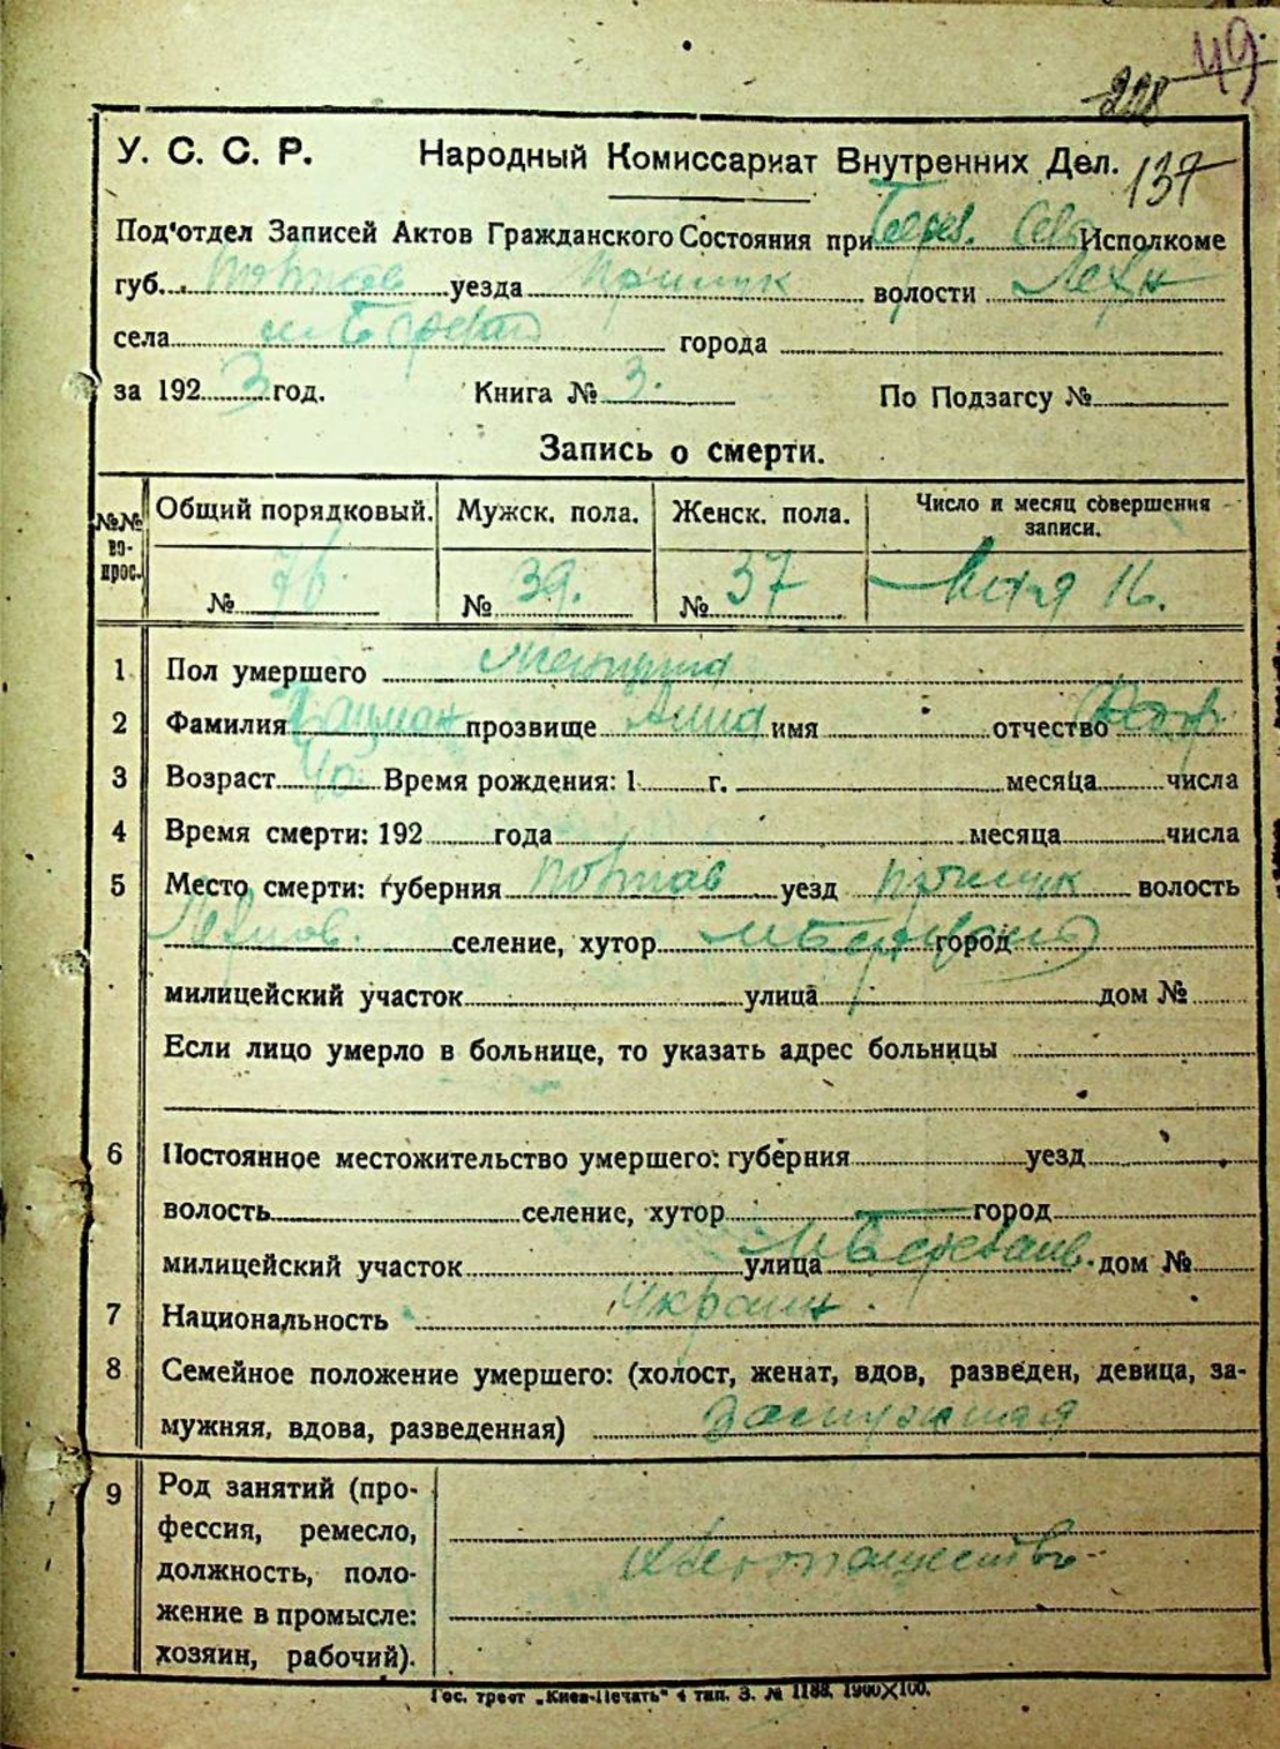 49
228
137
У. С. С. Р. Народный Комиссариат Внутренних Дел.
Под'отдел Записей Актов Гражданского Состояния при Исполкоме
губ. уезда Прилук волости
села м Березан города
за 192 3 год. Книга № 3. По Подзагсу №
Запись о смерти.
№№ во- прос. Общий порядковый. Мужск. пола. Женск. пола. Число и месяц совершения записи.
№ 76 № 39. № 37 16.
1 Пол умершего
2 Фамилия прозвище Анна имя отчество
3 Возраст 40. Время рождения: 1 г. месяца числа
4 Время смерти: 192 года месяца числа
5 Место смерти: губерния Полтав уезд Прилук волость
селение, хутор город
милицейский участок улица дом №
Если лицо умерло в больнице, то указать адрес больницы
6 Постоянное местожительство умершего: губерния уезд
волость селение, хутор город
милицейский участок улица дом №
7 Национальность Украин.
8 Семейное положение умершего: (холост, женат, вдов, разведен, девица, за-
мужняя, вдова, разведенная) Замужная
9 Род занятий (про-
фессия, ремесло,
должность, поло-
жение в промысле:
хозяин, рабочий).
Хлебопашество
Гос. трест „Киев-Печать" 4 тип. З. № 1188. 1900×100.